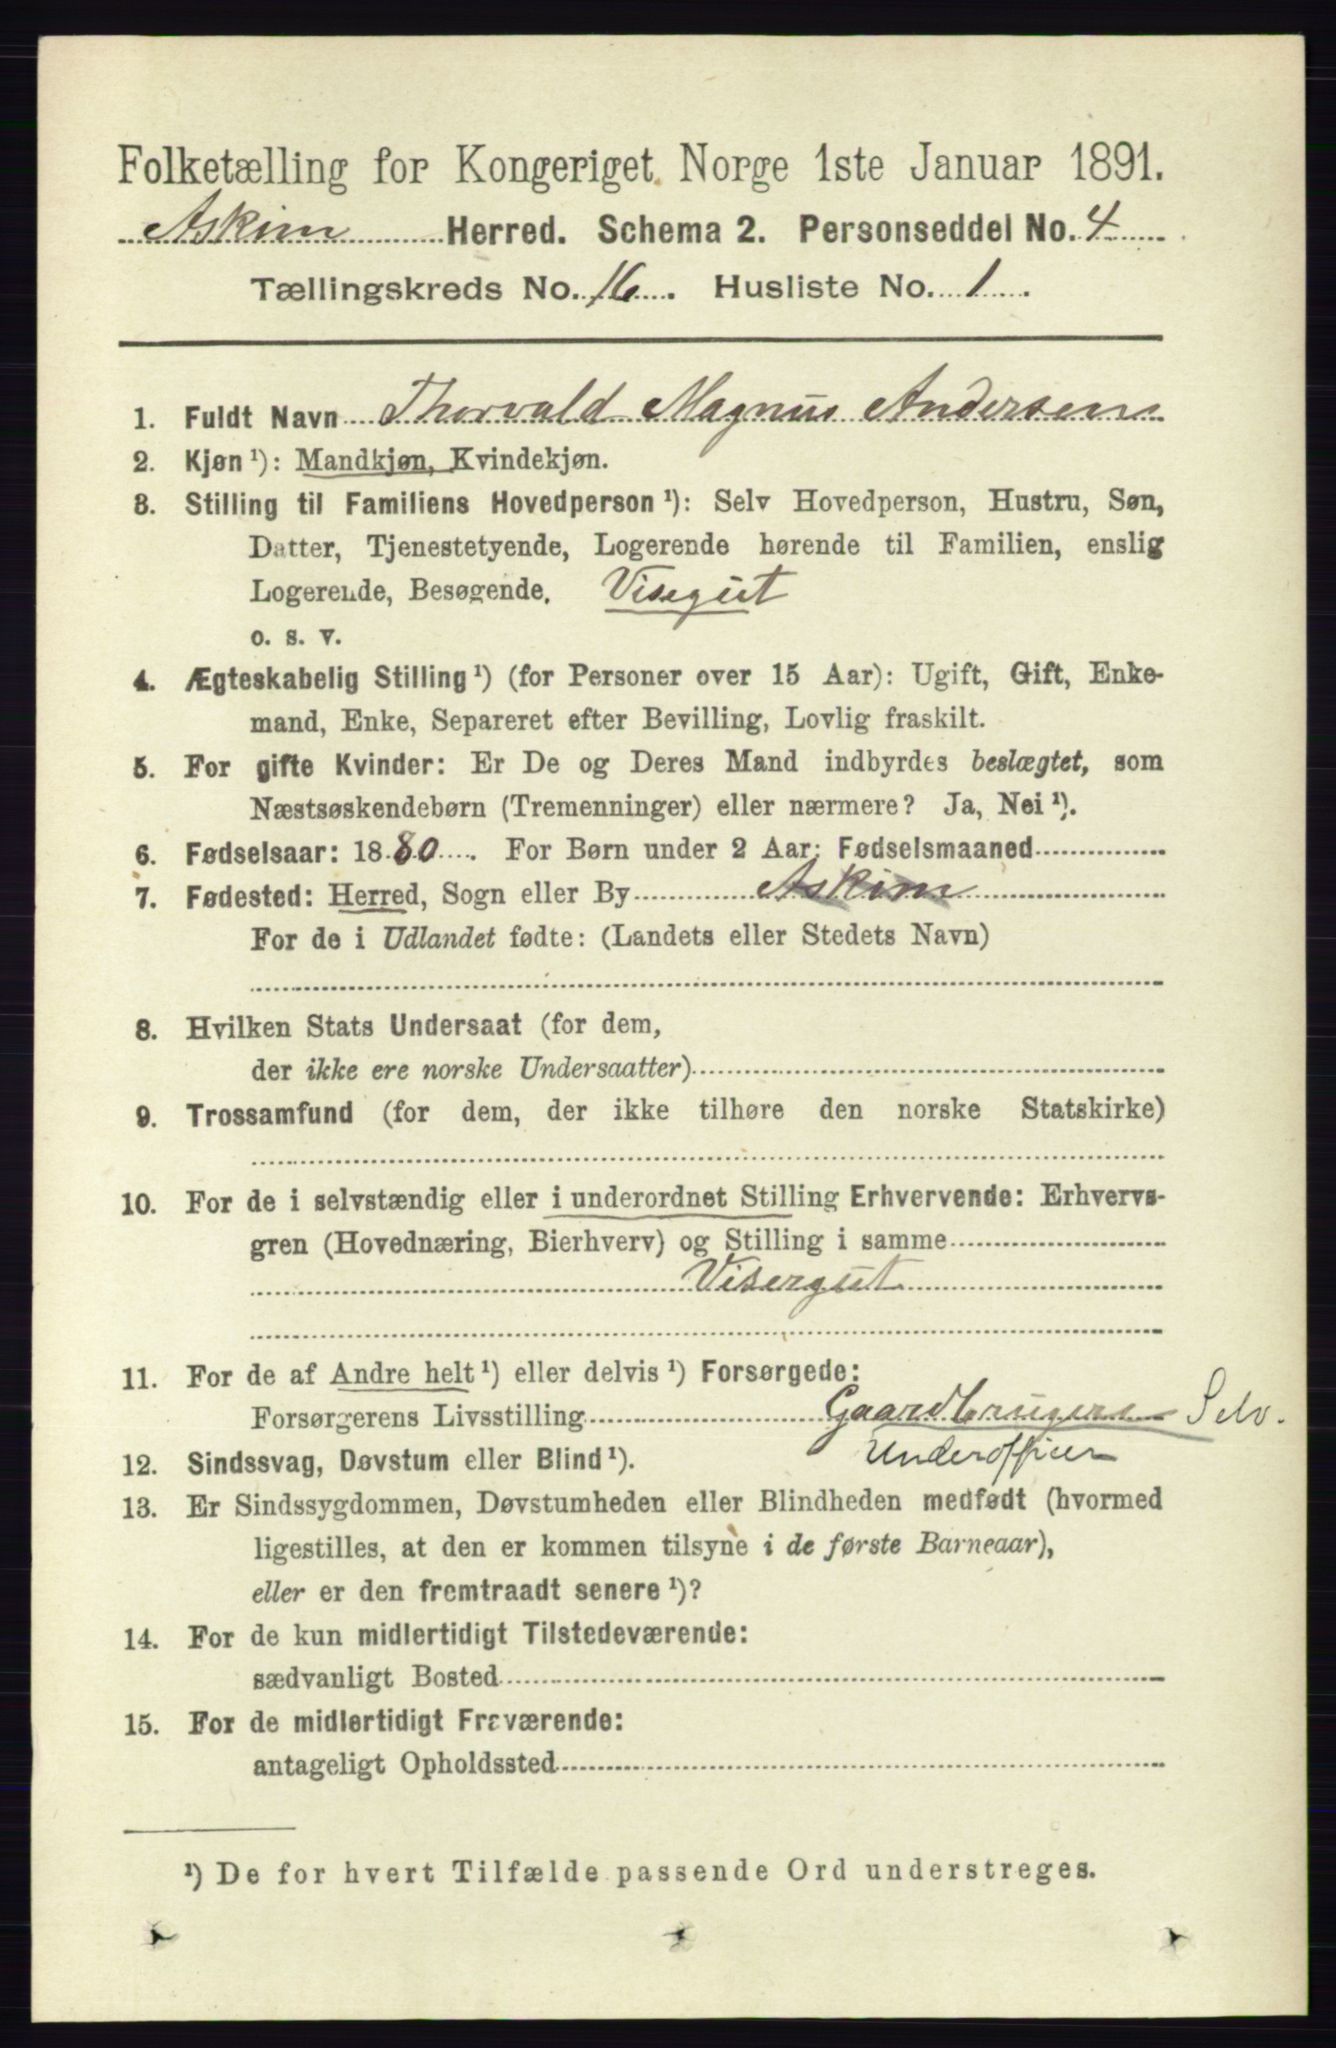 Folketælling for Kongeriget Norge 1ste Januar 1891.
Askim Herred. Schema 2. Personseddel No. 4
Tællingskreds No. 16. Husliste No. 1.
1. Fuldt Navn Thorvald Magnus Andersen
2. Kjøn ¹): Mandkjøn, Kvindekjøn.
3. Stilling til Familiens Hovedperson ¹): Selv Hovedperson, Hustru, Søn,
Datter, Tjenestetyende, Logerende hørende til Familien, enslig
Logerende, Besøgende. Visegut
o. s. v.
4. Ægteskabelig Stilling ¹) (for Personer over 15 Aar): Ugift, Gift, Enke-
mand, Enke, Separeret efter Bevilling, Lovlig fraskilt.
5. For gifte Kvinder: Er De og Deres Mand indbyrdes beslægtet, som
Næstsøskendebørn (Tremenninger) eller nærmere? Ja, Nei ¹).
6. Fødselsaar: 1880. For Børn under 2 Aar: Fødselsmaaned
7. Fødested: Herred, Sogn eller By Askim
For de i Udlandet fødte: (Landets eller Stedets Navn)
8. Hvilken Stats Undersaat (for dem,
der ikke ere norske Undersaatter)
9. Trossamfund (for dem, der ikke tilhøre den norske Statskirke)
10. For de i selvstændig eller i underordnet Stilling Erhvervende: Erhvervs-
gren (Hovednæring, Bierhverv) og Stilling i samme
Visergut
11. For de af Andre helt ¹) eller delvis ¹) Forsørgede:
Forsørgerens Livsstilling Gaardbruger Selv.
Underofficer
12. Sindssvag, Døvstum eller Blind ¹).
13. Er Sindssygdommen, Døvstumheden eller Blindheden medfødt (hvormed
ligestilles, at den er kommen tilsyne i de første Barneaar),
eller er den fremtraadt senere ¹)?
14. For de kun midlertidigt Tilstedeværende:
sædvanligt Bosted
15. For de midlertidigt Fraværende:
antageligt Opholdssted
¹) De for hvert Tilfælde passende Ord understreges.